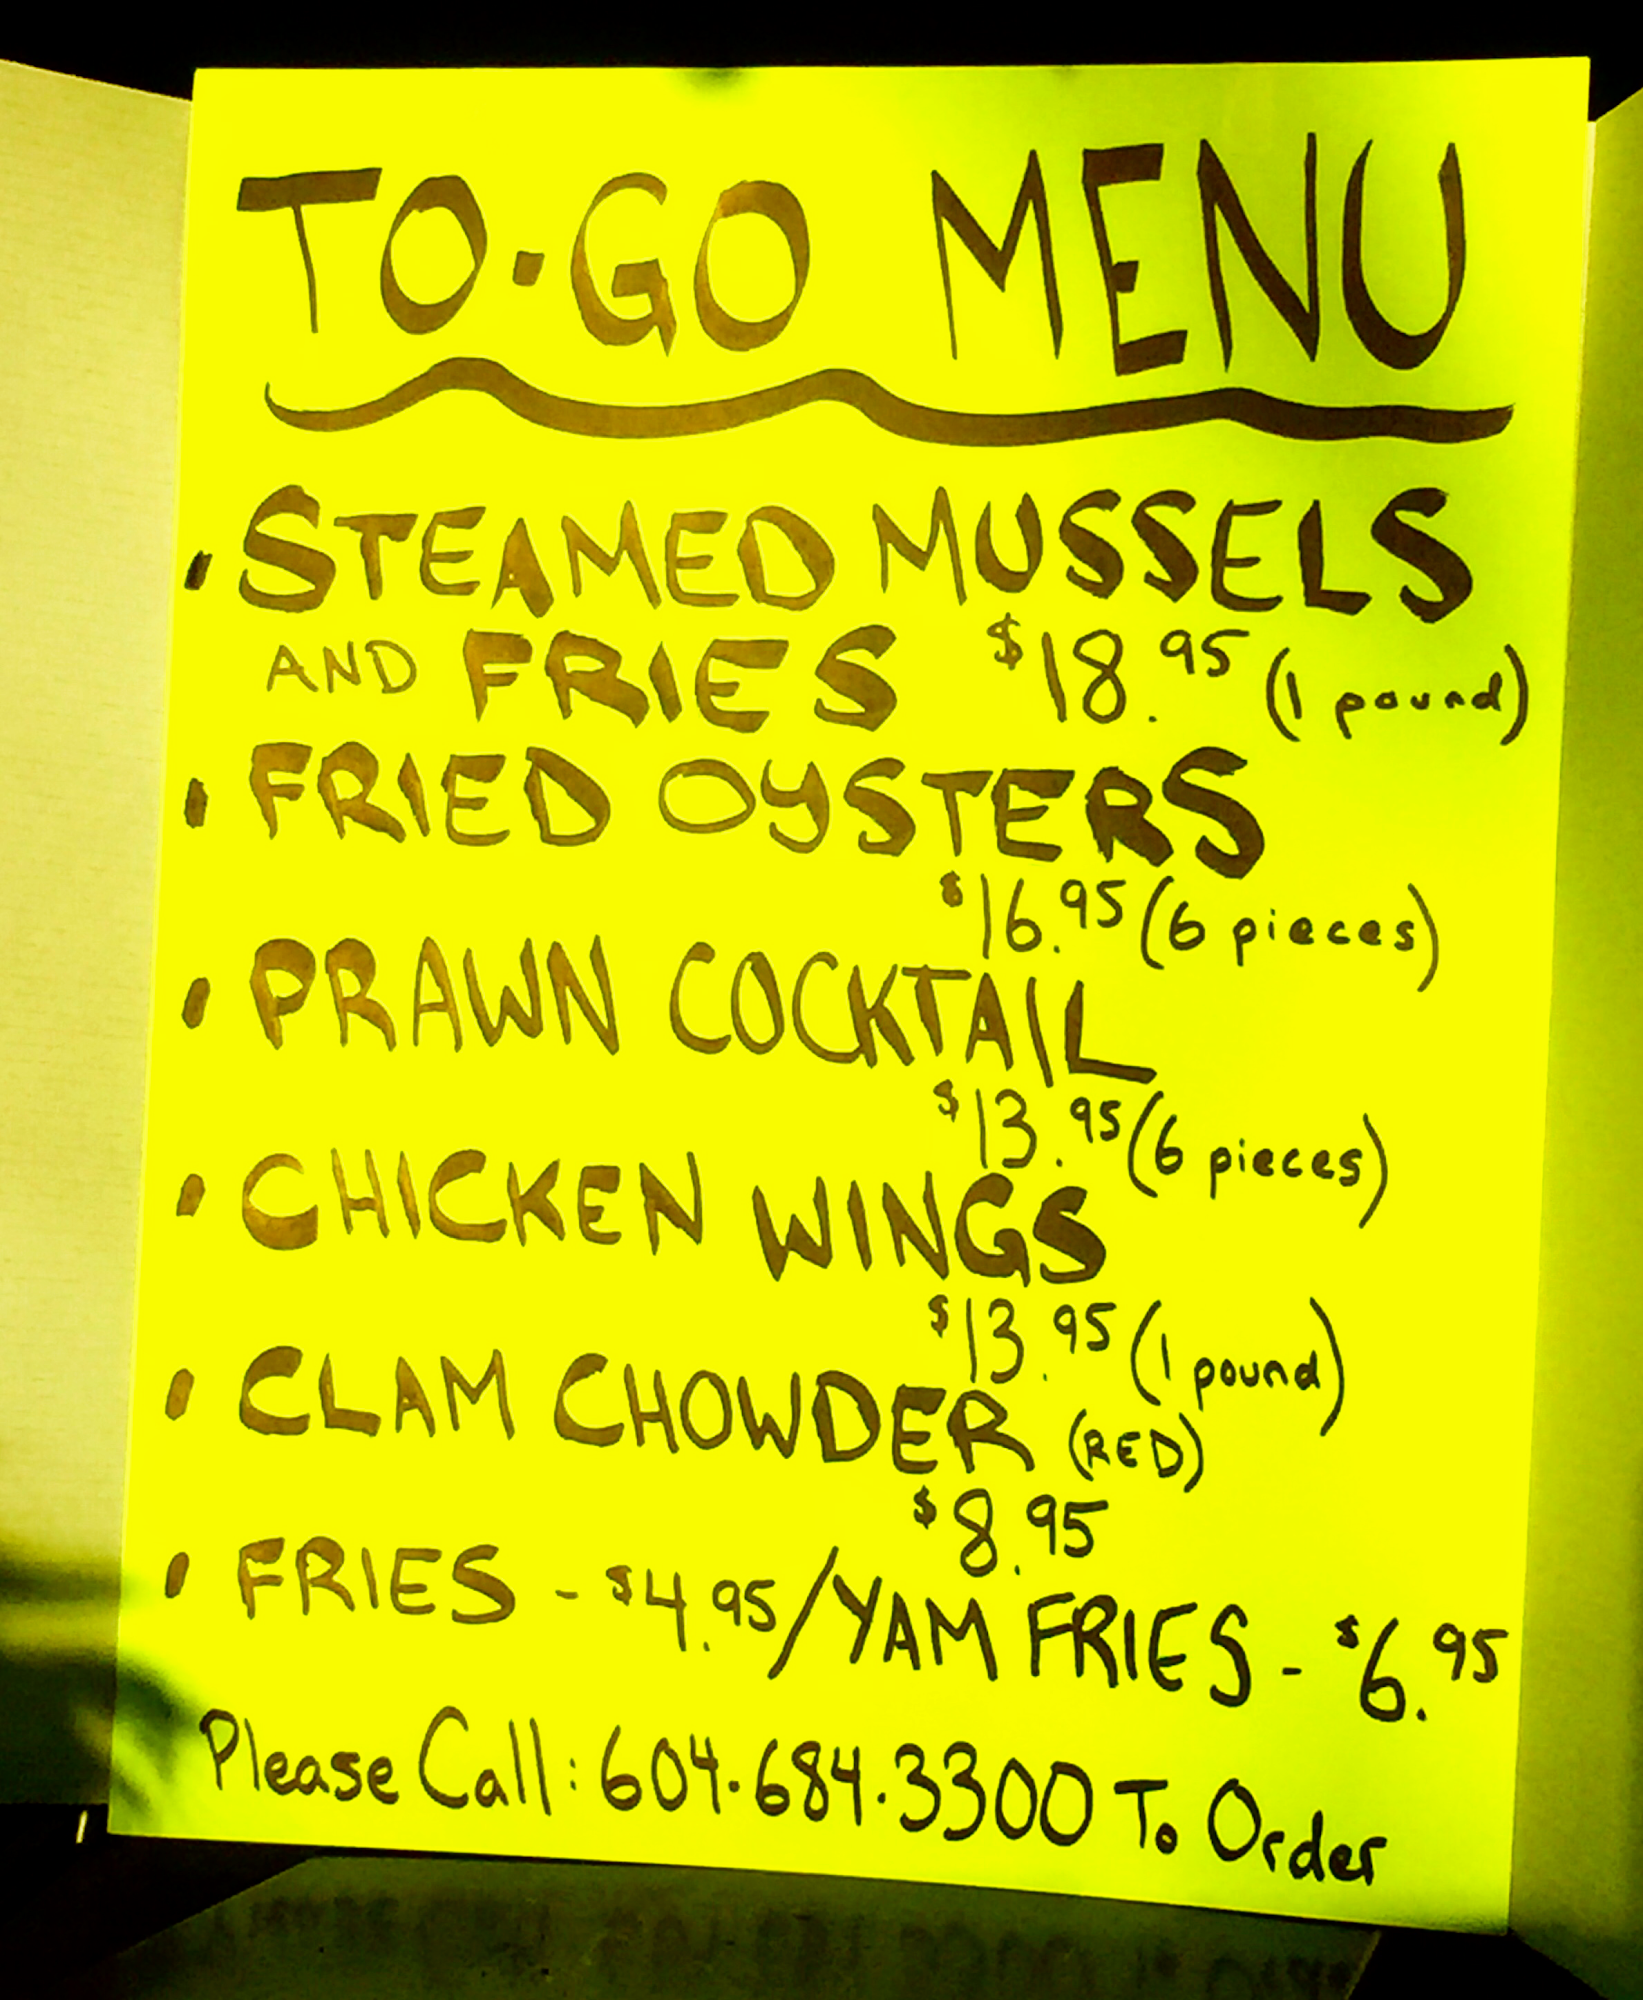 TO·GO MENU
· STEAMED MUSSELS
AND FRIES $18.95 (1 pound)
· FRIED OYSTERS
$16.95 (6 pieces)
· PRAWN COCKTAIL
$13.95 (6 pieces)
· CHICKEN WINGS
$13.95 (1 pound)
· CLAM CHOWDER (RED)
$8.95
· FRIES - $4.95/YAM FRIES - $6.95
Please Call: 604.684.3300 To Order